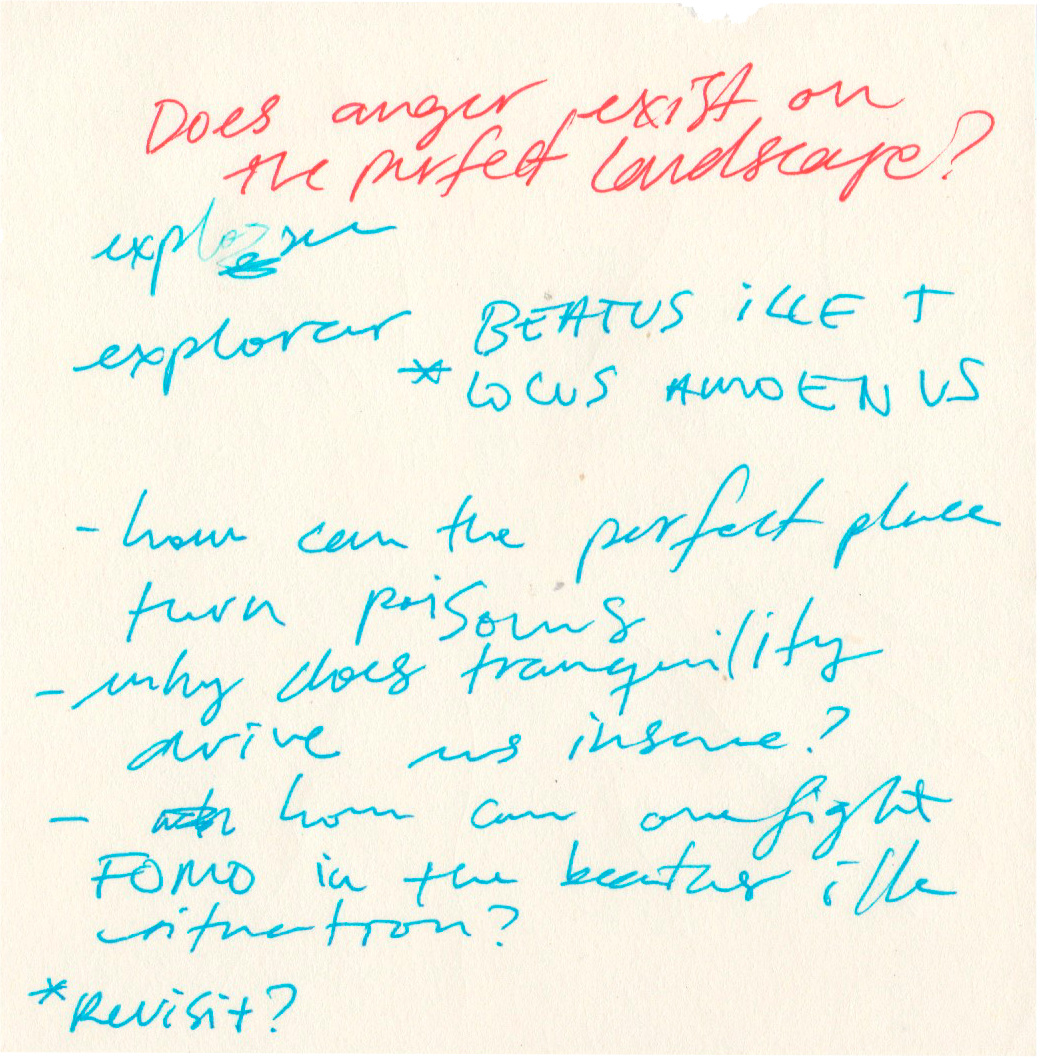 Does anger exist on
the perfect landscape?
explorar
BEATUS iLLE +
* LOCUS AMOENUS
- how can the perfect place
turn poisons
- why does tranquility
drive us insane?
- how can one fight
FOMO in the beatus ille
situation?
* Revisit?